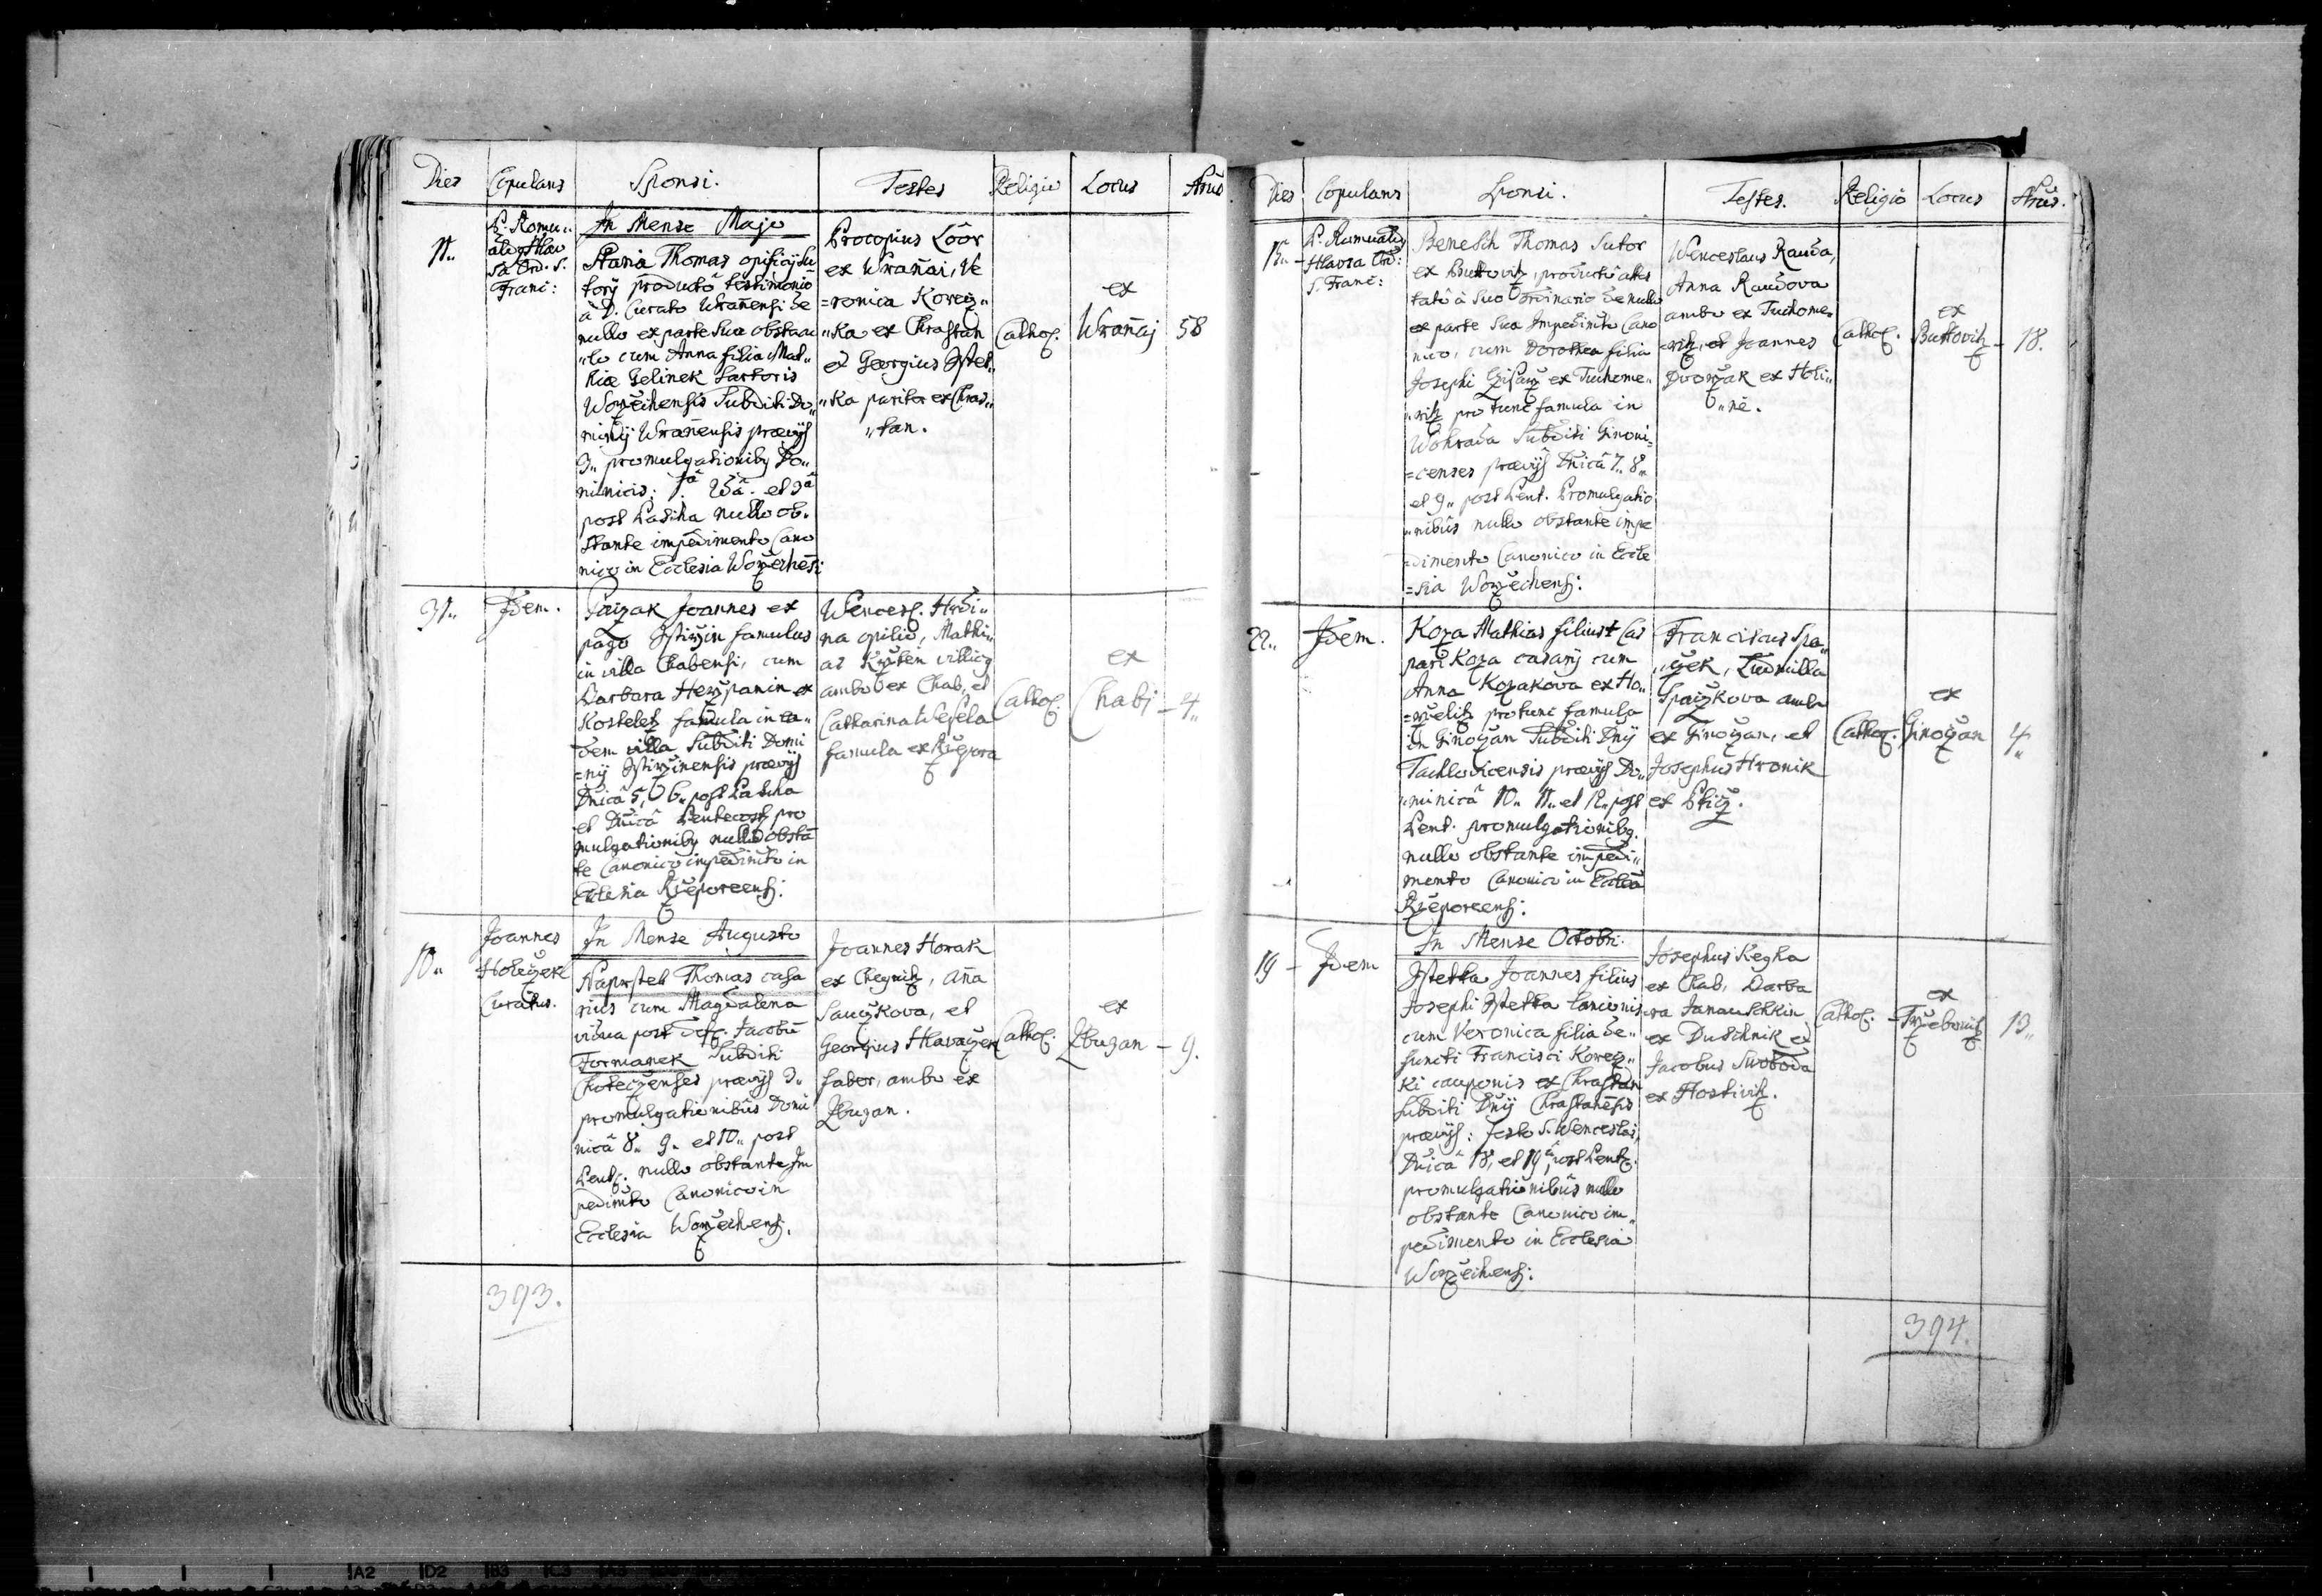 Dies Copulans Sponsi. Testes Religio Locus Nrus
In Mense Majo
11„
P. Romu„
aldus Hlav
sa Ord. S.
Franc:
Stania Thomas opificij su
torij producto testimonio
à D. Curato Wrañensi de
nullo ex parte sua obstacu
„lo cum Anna filia Mat„
hiæ Gelinek Sartoris
Worzechensis Subditi Do„
minij Wrañensis prævijs
3„ promulgationibg Do„
minicis: 1â 2dâ. et 3â
post Pascha nullo ob„
stante impedimento Cano
nico in Ecclesia Worzechensi
Procopius Loor
ex Wrañai, Ve
=ronica Korecz„
„ka ex Chrastan
et Georgius Isstet„
„ka pariter ex Chras„
„tan.
Cathol.
ex
Wrañaj
58
31„
Idem.
Paizak Joannes ex
pago Isstirzin famulus
in villa Chabensi, cum
Barbara Herzpanin ex
Kosteletz famula in ea„
dem villa Subditi Domi
=nij Isstirzinensis prævijs
Dñicâ 5, 6„ post Pascha
et Dñicâ Pentecost, pro
mulgationibg nullo obstã
te Canonico impedimto in
Ecclesia Rzeporeensi:
Wencesl. Hrdi„
na opilio, Mathi„
as Krzten villicg
ambo ex Chab, et
Catharina Wesela
famula ex Rzepora
Cathol.
ex
Chabj
4„
10„
Joannes
Holeczek
Curatus.
In Mense Augusto
Naprstek Thomas casa
rius cum Magdalena
vidua post def. Jacobũ
Formanek Subditi
Choteczenses prævijs 3„
promulgationibus Domi
nicâ 8„ 9„ et 10„ post
Pent. nullo obstante Im
pedimto Canonico in
Ecclesia Worzechensi.
Joannes Horak
ex Cheynitz, Aña
Sauczkova, et
Georgius Hlavaczek
faber, ambo ex
Zbuzan.
Cathol.
ex
Zbuzan
9.
393.
Dies Copulans Sponsi. Testes. Religio Locus Nrus.
15„
P. Rumualdg
Hlavsa Ord:
S. Franc:
Benesch Thomas Sutor
ex Buttovitz, producto attes
tato à suo Ordinario de nullo
ex parte sua Impedimto Cano
nico, cum Dorothea filia
Josephi Czisarz ex Tuchome„
„ritz pro tunc famula in
Wohrada Subditi Ginoni=
=censes prævijs Dñicâ 7„ 8„
et 9„ post Pent. Promulgatio
„nibus nullo obstante impe
=dimento Canonico in Eccle
=sia Worzechensi:
Wenceslaus Rauda,
Anna Raudova
ambo ex Tuchome„
=ritz, et Joannes
Dvorzak ex Holi„
„nê.
Cathol.
ex
Buttovitz
18.
22„
Idem.
Koza Mathias filius † Cas
pari Koza casarij cum
Anna Kozakova ex Ho„
=rzelitz pro tunc famula
in Ginoczan Subditi Dñij
Tachlovicensis prævijs Do„
„minicâ 10„ 11„ et 12„ post
Pent. promulgationibg.
nullo obstante impedi„
mento Canonico in Eccleâ
Rzeporeensi:
Franciscus Spa„
„czek, Ludmilla
Spaczkova ambo
ex Ginoczan, et
Josephus Hronik
ex Pticz.
Cathol.
ex
Ginoczan
4„
19
Idem
In Mense Octobri.
Isstetka Joannes filius
Josephi Isstetka lanionis
cum Veronica filia de„
functi Francisci Korecz„
ki cauponis ex Chrastan
Subditi Dñij Chrastanẽsis
prævijs: festo S. Wenceslai,
Dñicâ 18, et 19â post Pent.
promulgationibus nullo
obstante Canonico im„
pedimento in Ecclesia
Worzechensi:
Josephus Kegha
ex Chab, Barba
ra Janauschkin
ex Duschnik et
Jacobus Swoboda
ex Hostivitz.
Cathol.
ex
Trzebonitz
13„
394.